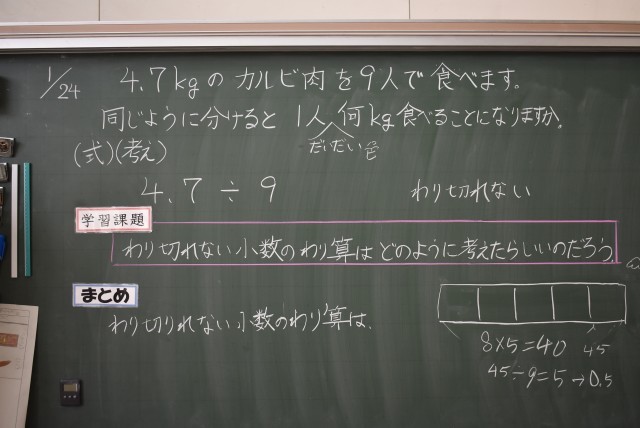 1/24
4.7kgのカルビ肉を9人で食べます。
同じように分けると1人何kg食べることになりますか。
だいたい
(式)(考え)
4.7÷9
わり切れない
学習課題
わり切れない小数のわり算はどのように考えたらいいのだろう
まとめ
わり切りれない小数のわり算は、
8×5=40
45
45÷9=5→0.5